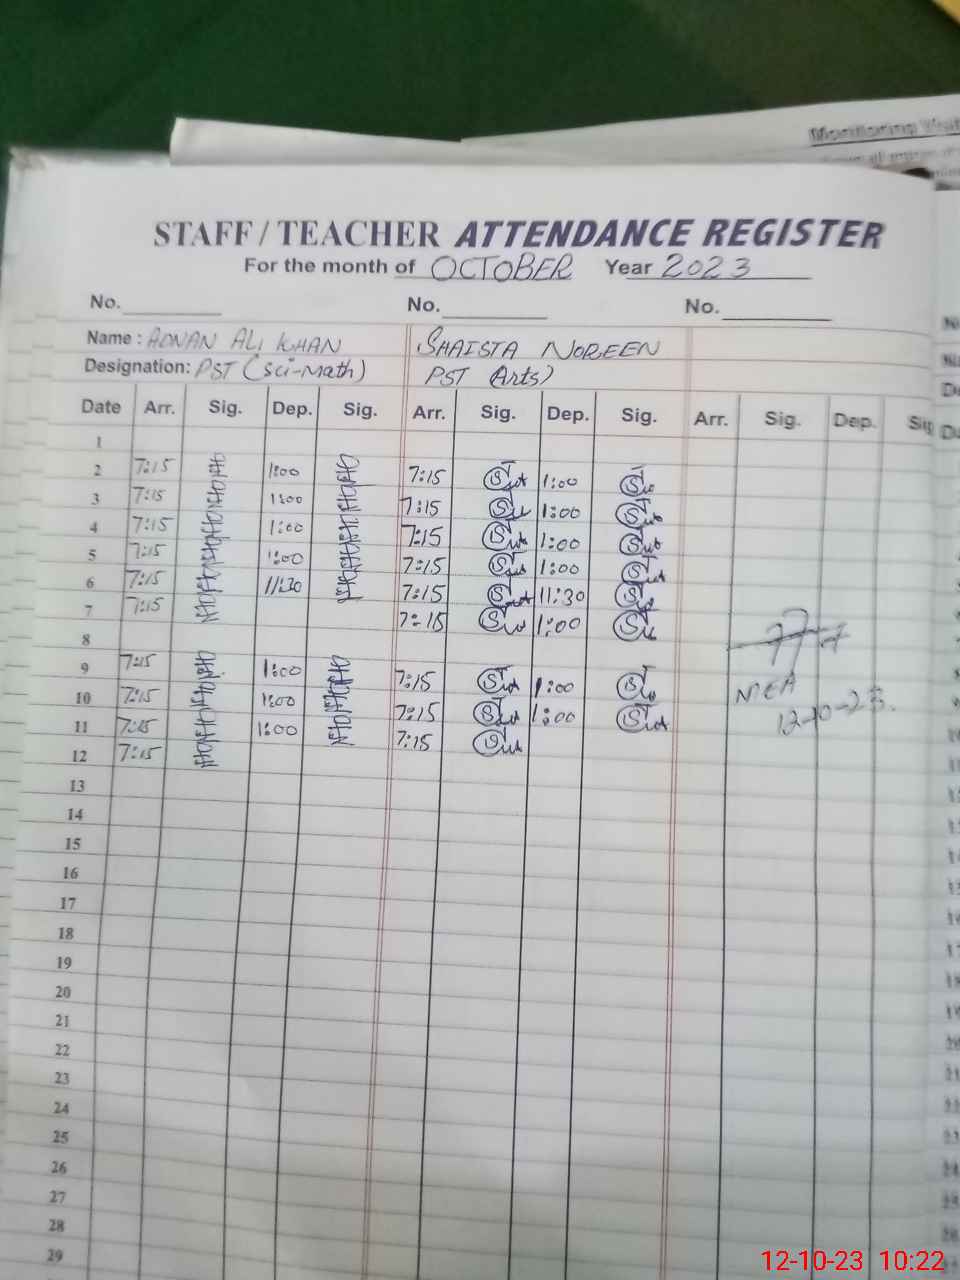 Monitoring Visit
STAFF / TEACHER ATTENDANCE REGISTER
For the month of OCTOBER Year 2023
No. No. No.
Name : ADNAN ALI KHAN SHAISTA NOREEN
Designation: PST (Sci-Math) PST (Arts)
Date Arr. Sig. Dep. Sig. Arr. Sig. Dep. Sig. Arr. Sig. Dep. Sig
1
2 7:15 1:00 7:15 1:00
3 7:15 1:00 7:15 1:00
4 7:15 1:00 7:15 1:00
5 7:15 1:00 7:15 1:00
6 7:15 11:30 7:15 11:30
7 7:15 7:15 1:00
8
9 7:15 1:00 7:15 1:00
10 7:15 1:00 7:15 1:00
11 7:15 1:00 7:15
12 7:15
MEA
12-10-23.
13
14
15
16
17
18
19
20
21
22
23
24
25
26
27
28
29
12-10-23 10:22